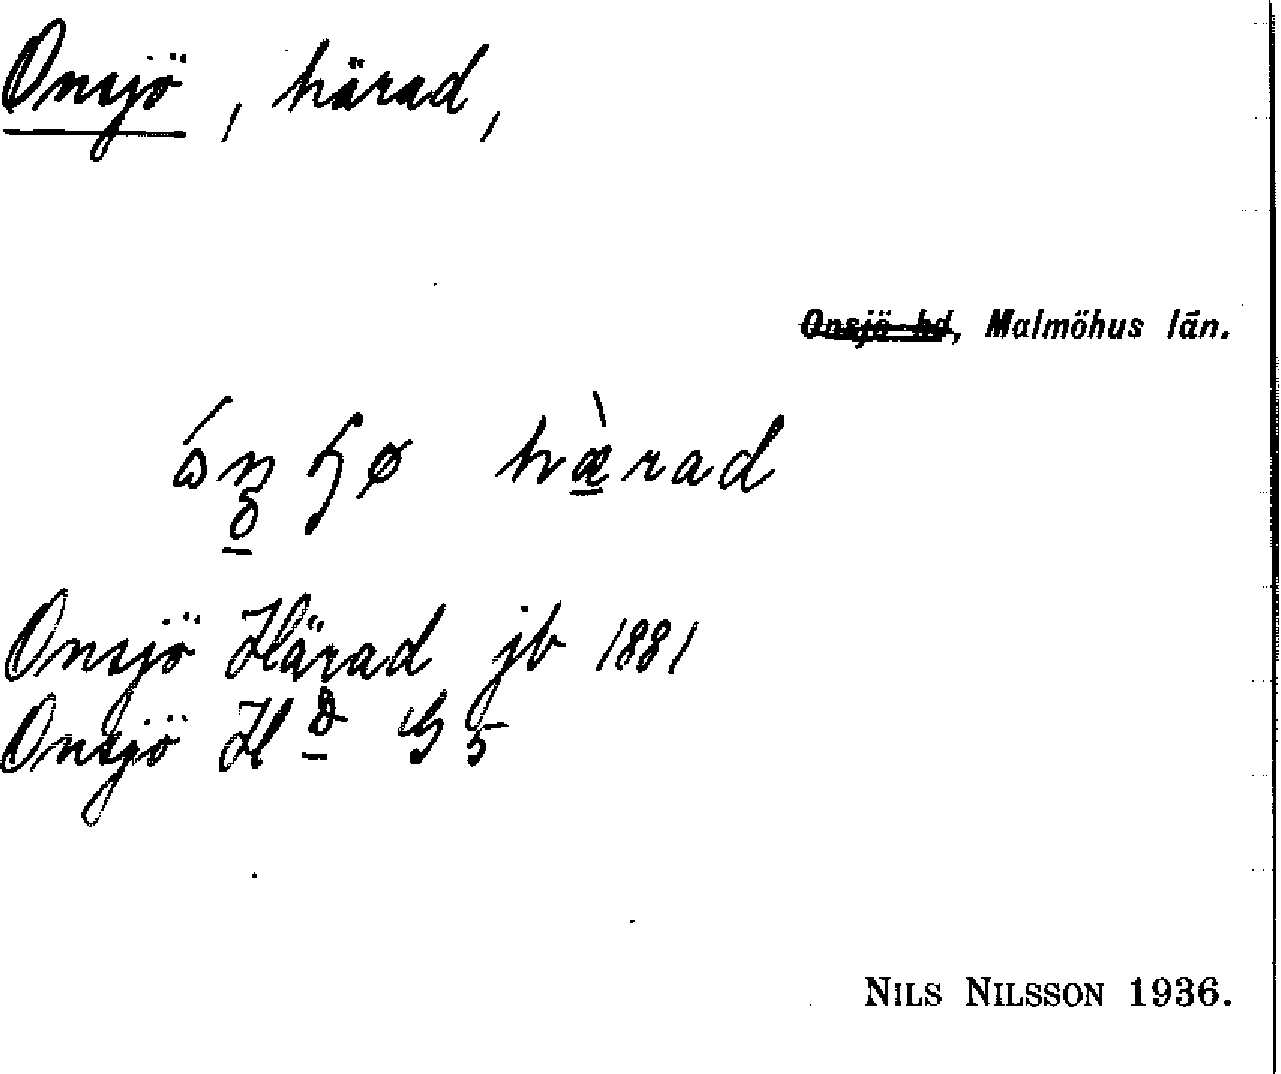 Onsjö, härad,
Onsjö hd, Malmöhus län.
hæ̀rad
Onsjö Härad jb 1881
Onsjö Hd G 5
NILS NILSSON 1936.